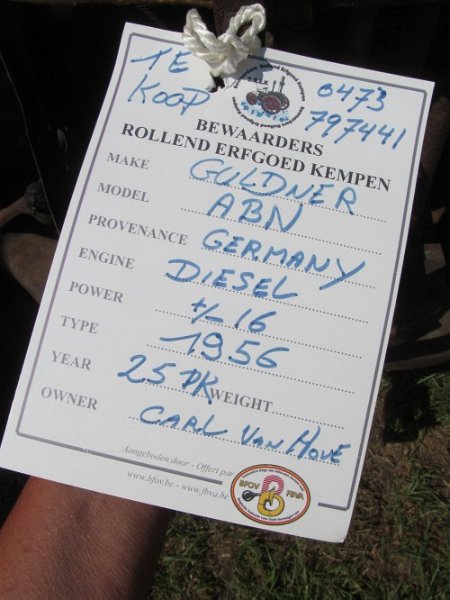 TE KOOP
0473 797441
BEWAARDERS
ROLLEND ERFGOED KEMPEN
MAKE GULDNER
MODEL ABN
PROVENANCE GERMANY
ENGINE DIESEL
POWER +/- 16
TYPE 1956
YEAR 25 PK WEIGHT
OWNER CARL VAN HOVE
Aangeboden door - Offert par
www.bfov.be - www.fbva.be
BFOV FBVA